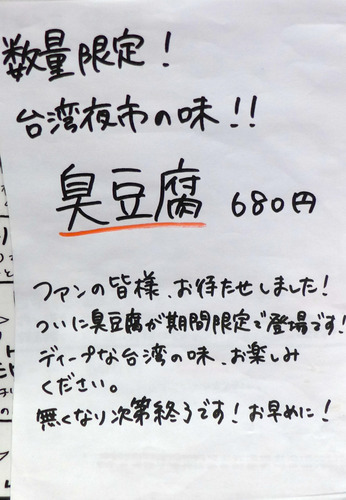 数量限定!
台湾夜市の味!!
臭豆腐 680円
ファンの皆様、お待たせしました!
ついに臭豆腐が期間限定で登場です!
ディープな台湾の味、お楽しみ
ください。
無くなり次第終了です!お早めに!